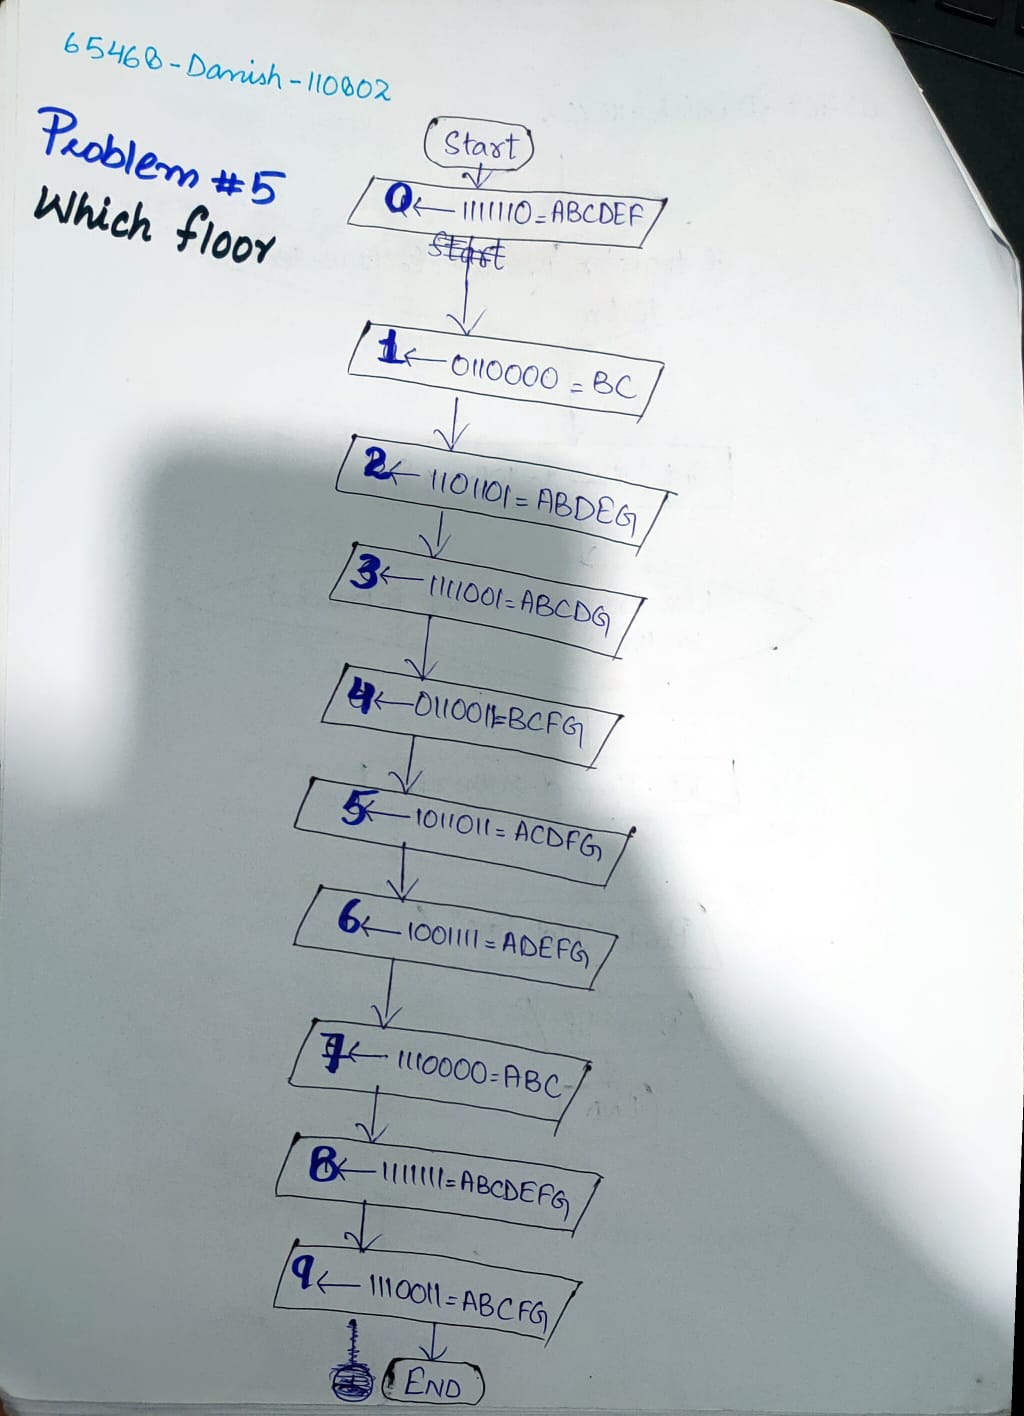 65468-Danish-110802
Problem #5
Which floor
Start
0←1111110=ABCDEF
Start
1←0110000=BC
2←1101101=ABDEG
3←1111001=ABCDG
4←0110011=BCFG
5←1011011=ACDFG
6←1001111=ADEFG
7←1110000=ABC
8←1111111=ABCDEFG
9←1110011=ABCFG
END